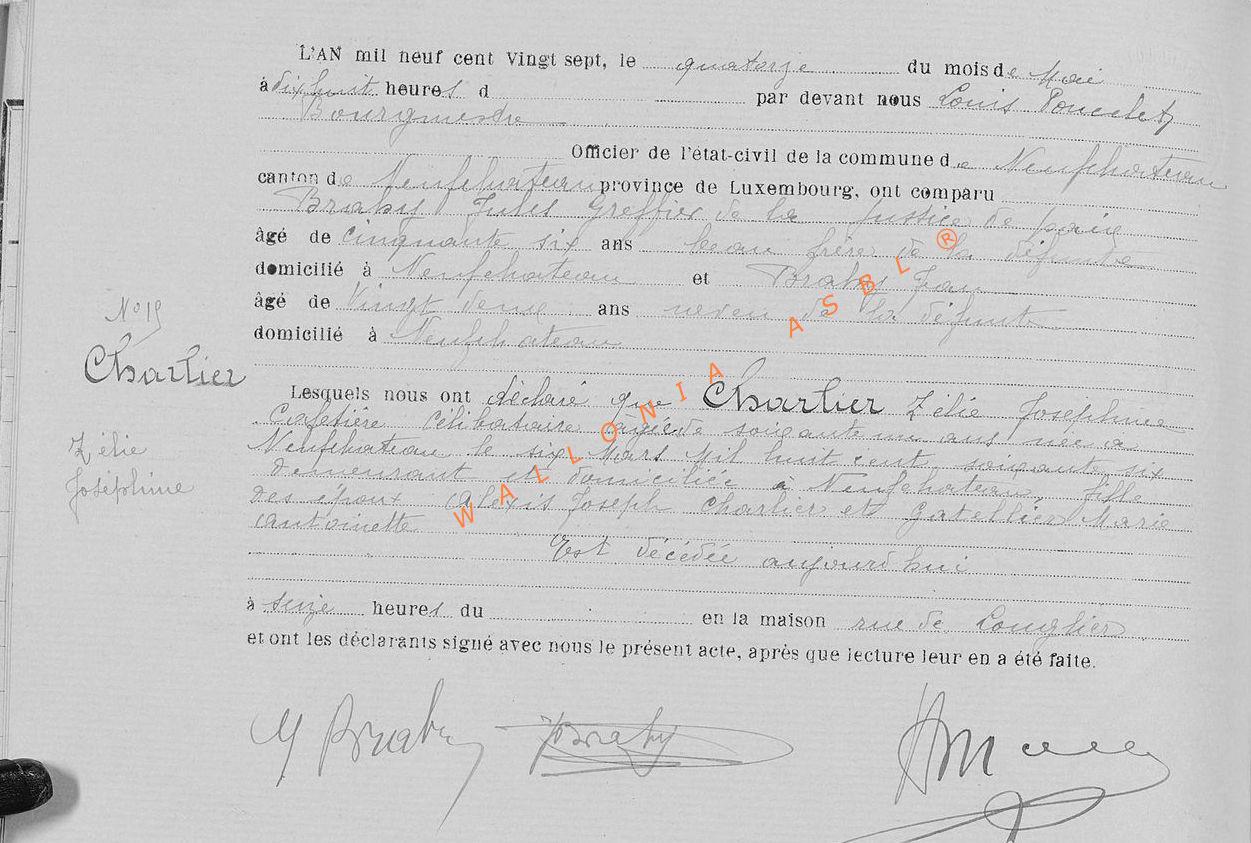 L'AN mil neuf cent Vingt sept, le quatorze du mois de Mai
à dix huit heures d par devant nous Louis Poncelet
Bourgmestre
Officier de l'état-civil de la commune de Neufchateau
canton de Neufchateau province de Luxembourg, ont comparu
Braby Jules Greffier de la Justice de paix
âgé de cinquante six ans beau frère de la défunte
domicilié à Neufchateau et Braby Jean
âgé de Vingt deux ans neveu de la défunte
domicilié à Neufchateau
N° 19
Charlier
Zélie
Joséphine
Lesquels nous ont déclaré que Charlier Zélie Joséphine
Cafetière Célibataire âgée de soixante un ans née à
Neufchateau le six Mars Mil huit cent soixante six
demeurant et domiciliée à Neufchateau, fille
des époux Alexis Joseph Charlier et Gatellier Marie
Antoinette
Est décédée aujourd'hui
à seize heures du en la maison rue de Longlier
et ont les déclarants signé avec nous le présent acte, après que lecture leur en a été faite.
Braby JBraby
WALLONIA ASBL ®